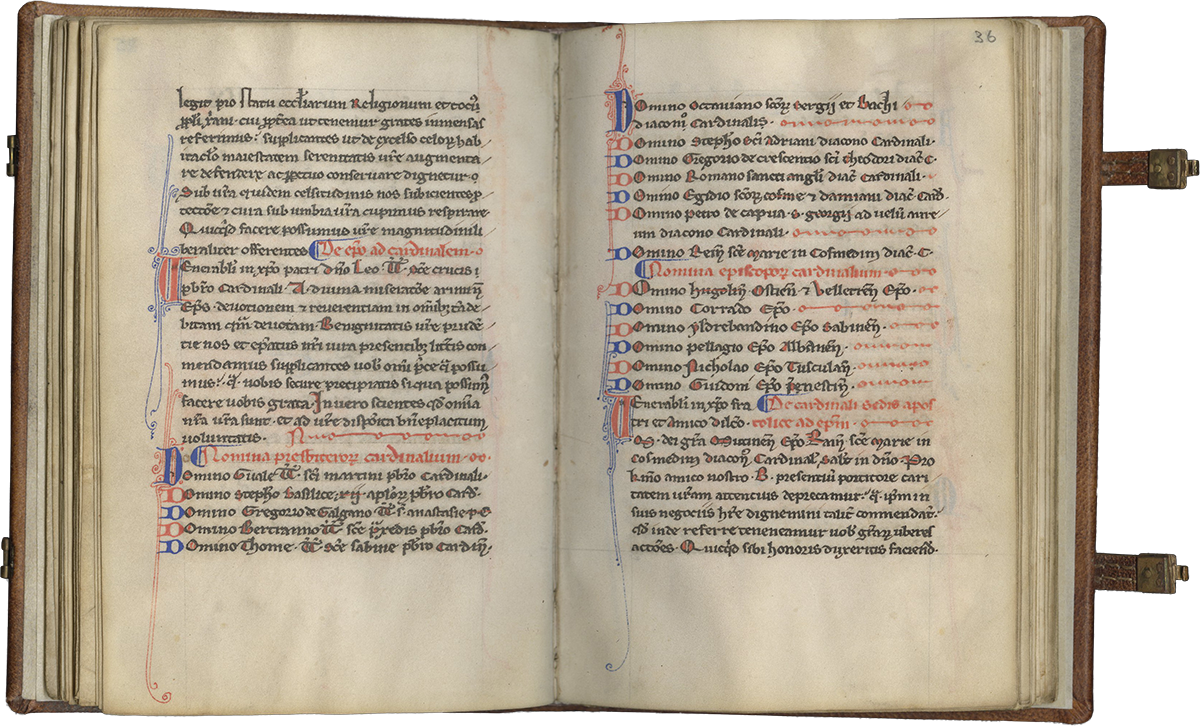 legit pro statu eccl̄iarum Religionum et tociꝰ
pp̄li xp̄ani. cui ppt̄ea ut tenemur grates inmensas
referimus. supplicantes ut de excelso celoꝝ hab
itaclo maiestatem serenitatis vr̄e augmenta
re defendere ac ꝑpetuo conservare dignetur
Sub vr̄a quidem celsitudinis nos subicientes ꝓ
tectōe ⁊ cura sub umbra vr̄a cupimus respirare.
Quicqd facere possumus vr̄e magnitudini li
beraliter offerentes De ep̄o ad cardinalem
Venerabli in xp̄o patri dn̄o Leo. t̄t. sc̄e crucis
pb̄ro Cardinali. A. divina miseratōe arimin̄
Ep̄s. devotionem et reverentiam in om̄ibꝫ tā de
bitam qm̄ devotam. Benignitatis vr̄e prudē
tie nos et ep̄atus nr̄i iura presentibꝫ litt̄is con
mendamus supplicantes vob om̄i p̄ce q̄ possu
mus. q̄. vobis secure precipiatis si qua possim̄
facere vobis grata. In vero scientes qd om̄ia
nr̄a vr̄a sunt. et ad vr̄e dispōnis bn̄eplacitum
voluntatis.
Nomina presbiteroꝝ cardinalium
Domino Guale t̄t. sc̄i martini pb̄ro Cardinali.
Domino Stepho Basilice. xii. ap̄loꝝ pb̄ro Card.
Domino Gregorio de Galgano t̄t. s. anastasie p. C
Domino Bertranno t̄t. sc̄e p̄xedis pb̄ro Card.
Domino Thome. t̄t. sc̄e sabine pb̄ro Cardin̄.
36
Domino Octaviano sc̄oꝝ Sergii et Bachi
diacon̄ Cardinalis.
Domino Stepho Sc̄i Adriani diacono Cardinali.
Domino Gregorio de crescentio sc̄i theodori diac̄ C.
Domino Romano sancti angli diac̄ Cardinali.
Domino Egidio sc̄oꝝ cosme ⁊ damiani diac̄ Card.
Domino petro de capua. s. georgii ad velū aure
um diacono Cardinali.
Domino Rein̄ sc̄e marie in Cosmedin diac̄. C.
Nomina episcopoꝝ cardinalium
Domino hugolin̄ Ostien̄ ⁊ Velletren̄ Ep̄o.
Domino Corrado Ep̄o.
Domino yldrebandino Ep̄o Sabinen̄.
Domino pellagio Ep̄o Albanen̄.
Domino Nicholao Ep̄o Tusculan̄.
Domino Guidoni Ep̄o p̄nestin̄.
Venerabli in xp̄o fra De cardinali sedis apos
tri et amico dilc̄o. tolice ad ep̄m.
dei gr̄a Mutinen̄ Ep̄o Rain̄ sc̄e marie in
Cosmedin diacon̄ Cardinal̄ Salt̄ in dn̄o pro
kmo amico nostro. B. presentiū portitore cari
tatem vr̄am attencius deprecamur. q̄. ip̄m in
suis negociis hr̄e dignemini talit̄ commendat̄.
qd inde referre teneneamur vob gr̄aꝝ uberes
actōes. Quicqd sibi honoris duxeritis faciend.